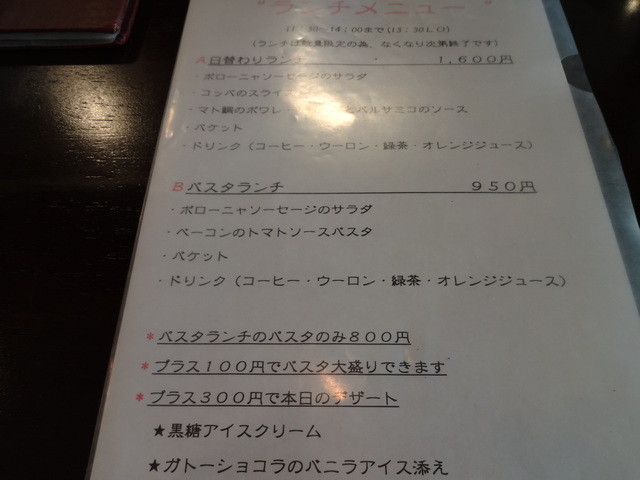 "ランチメニュー"
30~14:00まで(13:30LO)
(ランチは数量限定の為、なくなり次第終了です)
A日替わりランチ 1,600円
・ボローニャソーセージのサラダ
・コッパのスライ
・マト鯛のポワレ とバルサミコのソース
・バケット
・ドリンク(コーヒー・ウーロン・緑茶・オレンジジュース)
Bパスタランチ 950円
・ボローニャソーセージのサラダ
・ベーコンのトマトソースパスタ
・バケット
・ドリンク(コーヒー・ウーロン・緑茶・オレンジジュース)
*パスタランチのパスタのみ800円
*プラス100円でパスタ大盛りできます
*プラス300円で本日のデザート
★黒糖アイスクリーム
★ガトーショコラのバニラアイス添え